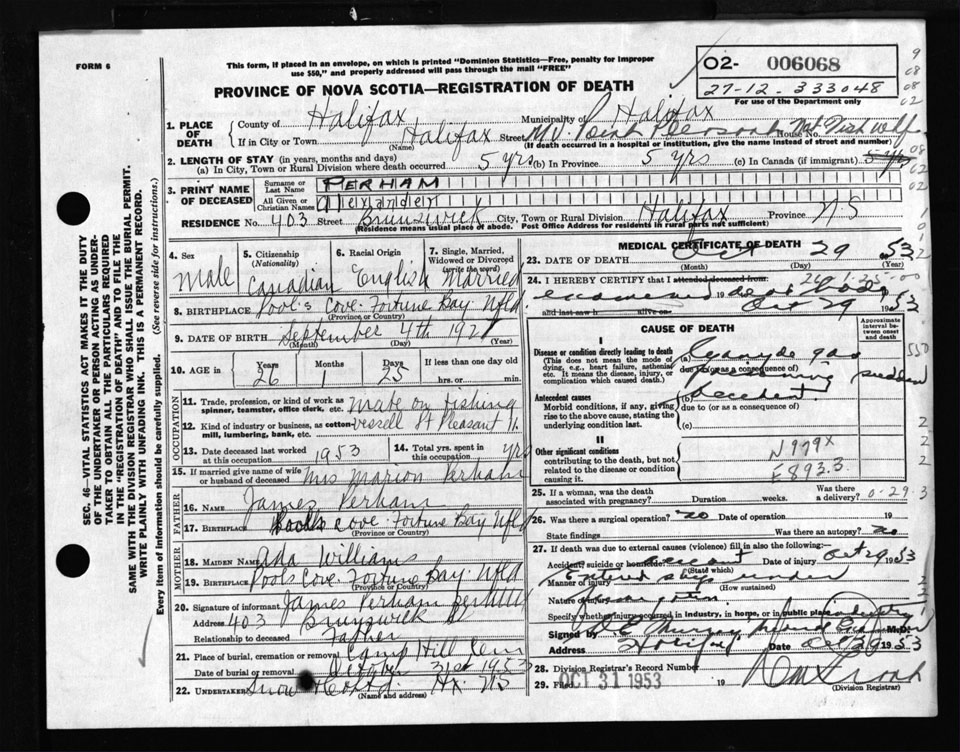 FORM 6
This form, if placed in an envelope, on which is printed "Dominion Statistics—Free, penalty for improper
use $50," and properly addressed will pass through the mail "FREE"
O2- 006068
27-12- 333048
For use of the Department only
9
08
08
02
PROVINCE OF NOVA SCOTIA—REGISTRATION OF DEATH
1. PLACE OF DEATH
County of Halifax Municipality of Halifax
If in City or Town Halifax Street M.V. House No.
(Name) (If death occurred in a hospital or institution, give the name instead of street and number)
2. LENGTH OF STAY (in years, months and days)
(a) In City, Town or Rural Division where death occurred 5 yrs (b) In Province 5 yrs (c) In Canada (if immigrant)
3. PRINT NAME OF DECEASED
Surname or Last Name PERHAM
All Given or Christian Names Alexander
RESIDENCE No. 403 Street Brunswick City, Town or Rural Division Halifax Province N.S
(Residence means usual place of abode. Post Office Address for residents in rural parts not sufficient)
4. Sex Male
5. Citizenship (Nationality) Canadian
6. Racial Origin English
7. Single, Married, Widowed or Divorced (write the word) Married
8. BIRTHPLACE Pool's Cove Fortune Bay Nfld
(Province or Country)
9. DATE OF BIRTH September 4th 192
(Month) (Day) (Year)
10. AGE in Years 26 Months 1 Days 25 If less than one day old
hrs. or min.
OCCUPATION
11. Trade, profession, or kind of work as spinner, teamster, office clerk, etc. Mate on fishing
12. Kind of industry or business, as cotton-mill, lumbering, bank, etc. vessell St Pleasant
13. Date deceased last worked at this occupation 1953
14. Total yrs. spent in this occupation yrs
15. If married give name of wife or husband of deceased Mrs Marion Perham
FATHER
16. Name James Perham
17. Birthplace Pools Cove Fortune Bay Nfld
(Province or Country)
MOTHER
18. Maiden Name Ada Williams
19. Birthplace Pools Cove Fortune Bay Nfld
(Province or Country)
20. Signature of informant James Perham
Address 403 Brunswick St
Relationship to deceased Father
21. Place of burial, cremation or removal Camp Hill Cem
Date of burial or removal October 31st 1953
22. Undertaker Snow & Co Ltd Hx NS
(Name and address)
MEDICAL CERTIFICATE OF DEATH
23. DATE OF DEATH Oct 29 1953
(Month) (Day) (Year)
24. I HEREBY CERTIFY that I attended deceased from
examined 19 dead body
and last saw h alive on Oct 29 1953
CAUSE OF DEATH
Approximate interval between onset and death
I
Disease or condition directly leading to death (a) Cyanyde gas
(This does not mean the mode of dying, e.g., heart failure, asthenia, etc. It means the disease, injury, or complication which caused death.)
due to (or as a consequence of) poisoning sudden
Antecedent causes (b) accident
Morbid conditions, if any, giving rise to the above cause, stating the underlying condition last.
due to (or as a consequence of)
(c)
II
Other significant conditions
contributing to the death, but not related to the disease or condition causing it.
N979X
E893.3
25. If a woman, was the death associated with pregnancy? Duration weeks. Was there a delivery?
26. Was there a surgical operation? no Date of operation 19
State findings Was there an autopsy? no
27. If death was due to external causes (violence) fill in also the following:—
Accident, suicide or homicide accident Date of injury Oct 29 1953
(State which)
Manner of injury Entered ship under
(How sustained)
Nature of injury fumigation
Specify whether injury occurred in industry, in home, or in public place industry
Signed by M.D.
Address Halifax Date Oct 29 1953
28. Division Registrar's Record Number
29. Filed OCT 31 1953 19
(Division Registrar)
SEC. 46—VITAL STATISTICS ACT MAKES IT THE DUTY
OF THE UNDERTAKER OR PERSON ACTING AS UNDER-
TAKER TO OBTAIN ALL THE PARTICULARS REQUIRED
IN THE "REGISTRATION OF DEATH" AND TO FILE THE
SAME WITH THE DIVISION REGISTRAR WHO SHALL ISSUE THE BURIAL PERMIT.
WRITE PLAINLY WITH UNFADING INK. THIS IS A PERMANENT RECORD.
Every item of information should be carefully supplied. (See reverse side for instructions.)